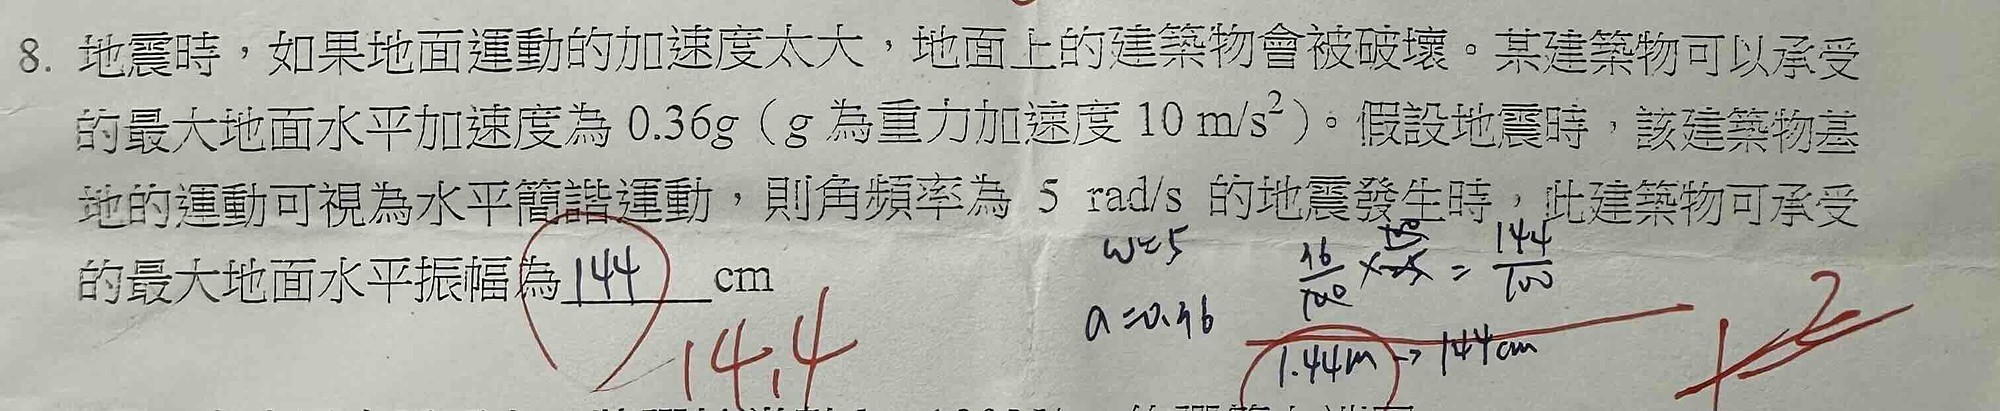 8. 地震時，如果地面運動的加速度太大，地面上的建築物會被破壞。某建築物可以承受
的最大地面水平加速度為 0.36g（g 為重力加速度 10 m/s²）。假設地震時，該建築物基
地的運動可視為水平簡諧運動，則角頻率為 5 rad/s 的地震發生時，此建築物可承受
的最大地面水平振幅為 144 cm
14.4
ω=5
a=0.36
36/100 × = 144/100
1.44m → 144cm